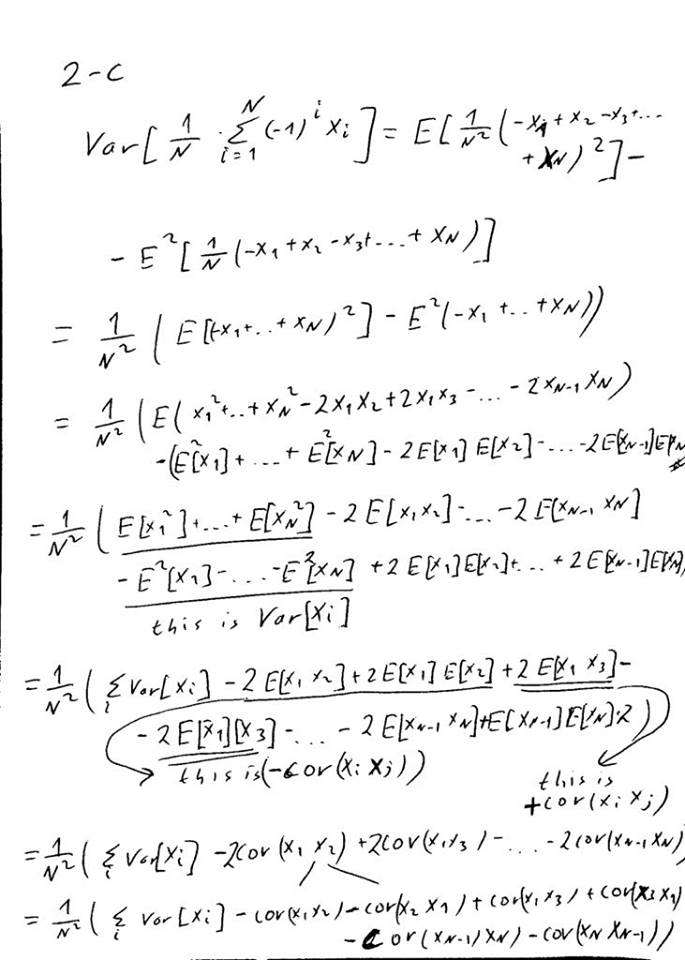 2-c
Var[ 1/N · Σ_{i=1}^{N} (-1)^i x_i ] = E[ 1/N² (-x_1 + x_2 - x_3 + ...
+ x_N)² ] -
- E² [ 1/N (-x_1 + x_2 - x_3 + ... + x_N) ]
= 1/N² ( E[(-x_1 + .. + x_N)²] - E²(-x_1 + .. + x_N))
= 1/N² ( E( x_1² + .. + x_N² - 2x_1x_2 + 2x_1x_3 - ... - 2x_{N-1}x_N )
- (E²[x_1] + ... + E²[x_N] - 2E[x_1] E[x_2] - ... - 2E[x_{N-1}]E[x_N
= 1/N² ( E[x_1²] + ... + E[x_N²] - 2E[x_1x_2] - ... - 2E[x_{N-1} x_N]
- E²[x_1] - ... - E²[x_N] + 2E[x_1]E[x_2] + ... + 2E[x_{N-1}]E[x_N],
this is Var[x_i]
= 1/N² ( Σ_i Var[x_i] - 2E[x_1 x_2] + 2E[x_1] E[x_2] + 2E[x_1 x_3] -
- 2E[x_1][x_3] - ... - 2E[x_{N-1} x_N] + E[x_{N-1}]E[x_N]·2 )
this is (-cov(x_i x_j))
this is
+cov(x_i x_j)
= 1/N² ( Σ_i Var[x_i] - 2cov(x_1 x_2) + 2cov(x_1x_3) - ... - 2cov(x_{N-1}x_N)
= 1/N² ( Σ_i Var[x_i] - cov(x_1x_2) - cov(x_2 x_1) + cov(x_1x_3) + cov(x_3 x_1)
- cov(x_{N-1}) x_N) - cov(x_N x_{N-1}))